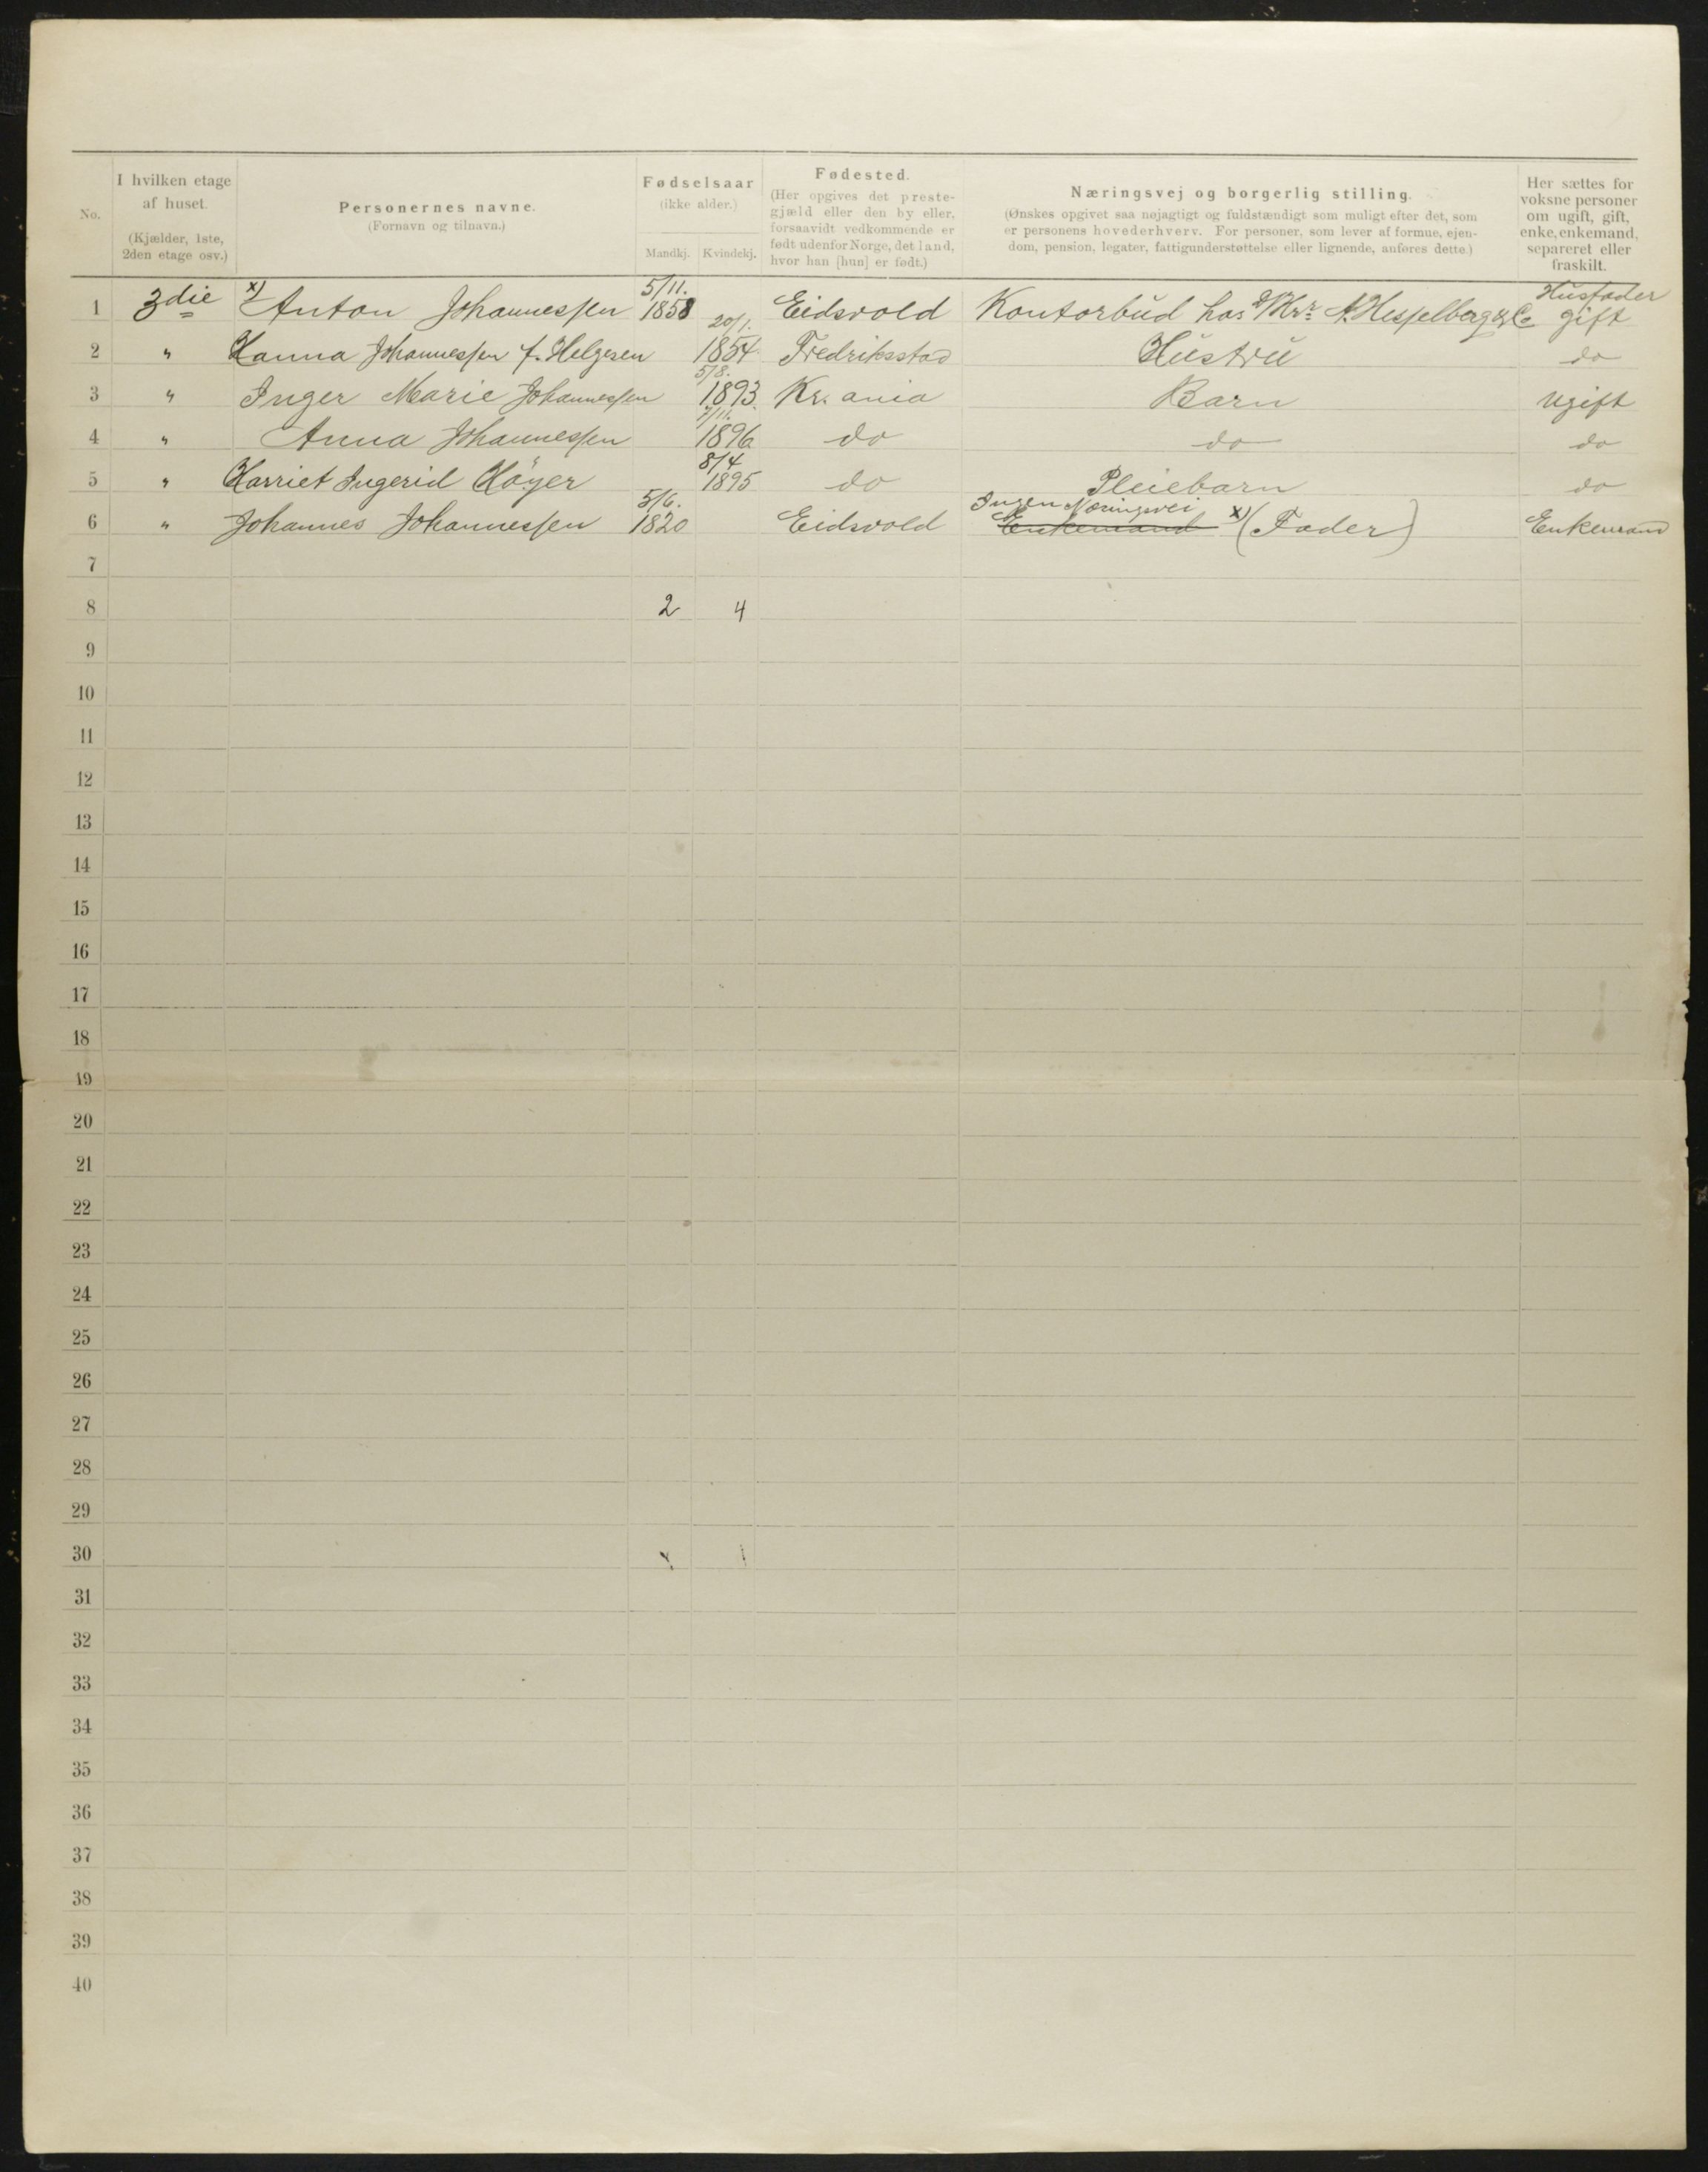 No.
I hvilken etage af huset.
(Kjælder, 1ste, 2den etage osv.)
Personernes navne.
(Fornavn og tilnavn.)
Fødselsaar
(ikke alder.)
Mandkj. Kvindekj.
Fødested.
(Her opgives det prestegjæld eller den by eller, forsaavidt vedkommende er født udenfor Norge, det land, hvor han [hun] er født.)
Næringsvej og borgerlig stilling.
(Ønskes opgivet saa nøjagtigt og fuldstændigt som muligt efter det, som er personens hovederhverv. For personer, som lever af formue, ejendom, pension, legater, fattigunderstøttelse eller lignende, anføres dette.)
Her sættes for voksne personer om ugift, gift, enke, enkemand, separeret eller fraskilt.
1 3die x) Anton Johannessen 5/11. 1858 Eidsvold Kontorbud hos Hesselberg & Co Husfader gift
2 " Hanna Johannessen f. Helgesen 20/1. 1854 Fredriksstad Hustru do
3 " Inger Marie Johannessen 5/8. 1893 Kr.ania Barn ugift
4 " Anna Johannessen 1896 do do do
5 " Harriet Ingerid Høyer 8/4 1895 do Pleiebarn do
6 " Johannes Johannessen 5/6. 1820 Eidsvold Ingen Næringsvei Enkemand x) (Fader) Enkemand
7
8 2 4
9
10
11
12
13
14
15
16
17
18
19
20
21
22
23
24
25
26
27
28
29
30
31
32
33
34
35
36
37
38
39
40